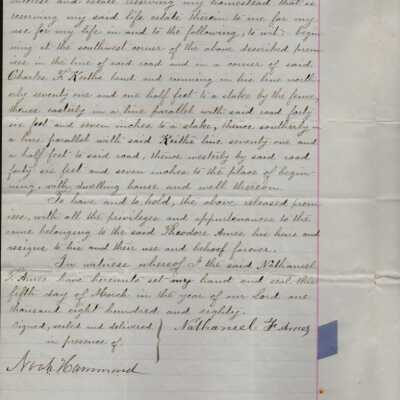 interest and estate reserving my homestead that is
reserving my said life estate therein to me for my
use for my life in and to the following, to wit: begin-
ning at the southwest corner of the above described prem-
ises in the line of said road and in a corner of said
Charles F. Keiths land and running in his line north-
erly seventy one and one half feet to a stake by the fence,
thence easterly in a line parallel with said road forty
six feet and seven inches to a stake, thence southerly in
a line parallel with said Keiths line seventy one and
a half feet to said road, thence westerly by said road
forty six feet and seven inches to the place of begin-
ning, with dwelling house and well thereon.
To have and to hold, the above released prem-
ises, with all the privileges and appurtenances to the
same belonging to the said Theodore Ames his heirs and
assigns to his and their use and behoof forever.
In witness whereof I the said Nathaniel
F. Ames have hereunto set my hand and seal this
fifth day of March in the year of our Lord one
thousand eight hundred and eighty.
Signed, sealed and delivered } Nathaniel F Ames
in presence of.
Noah Hammond